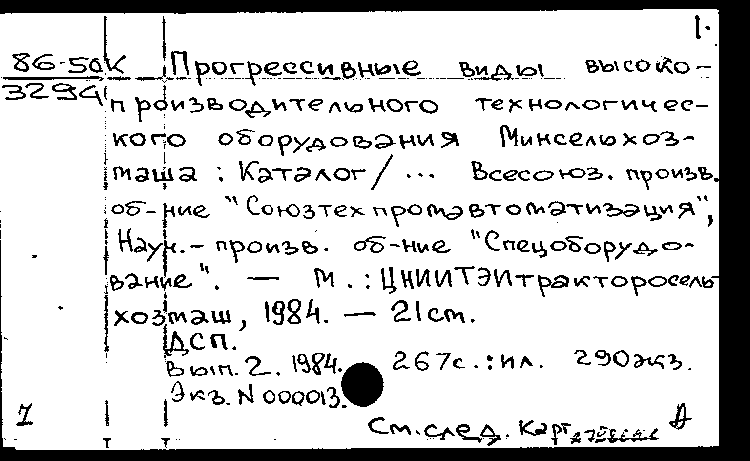 1.
86-50К Прогрессивные виды высоко-
3294 производительного технологичес-
кого оборудования Минсельхоз-
маша : Каталог / ... Всесоюз. произв.
об-ние "Союзтехпромавтоматизация",
Науч.-произв. об-ние "Спецоборудо-
вание". — М. : ЦНИИТЭИтракторосель-
хозмаш, 1984. — 21 см.
ДСП.
Вып. 2. 1984. 267с. : ил. 290 экз.
Экз. N 000013.
1 См. след. карт